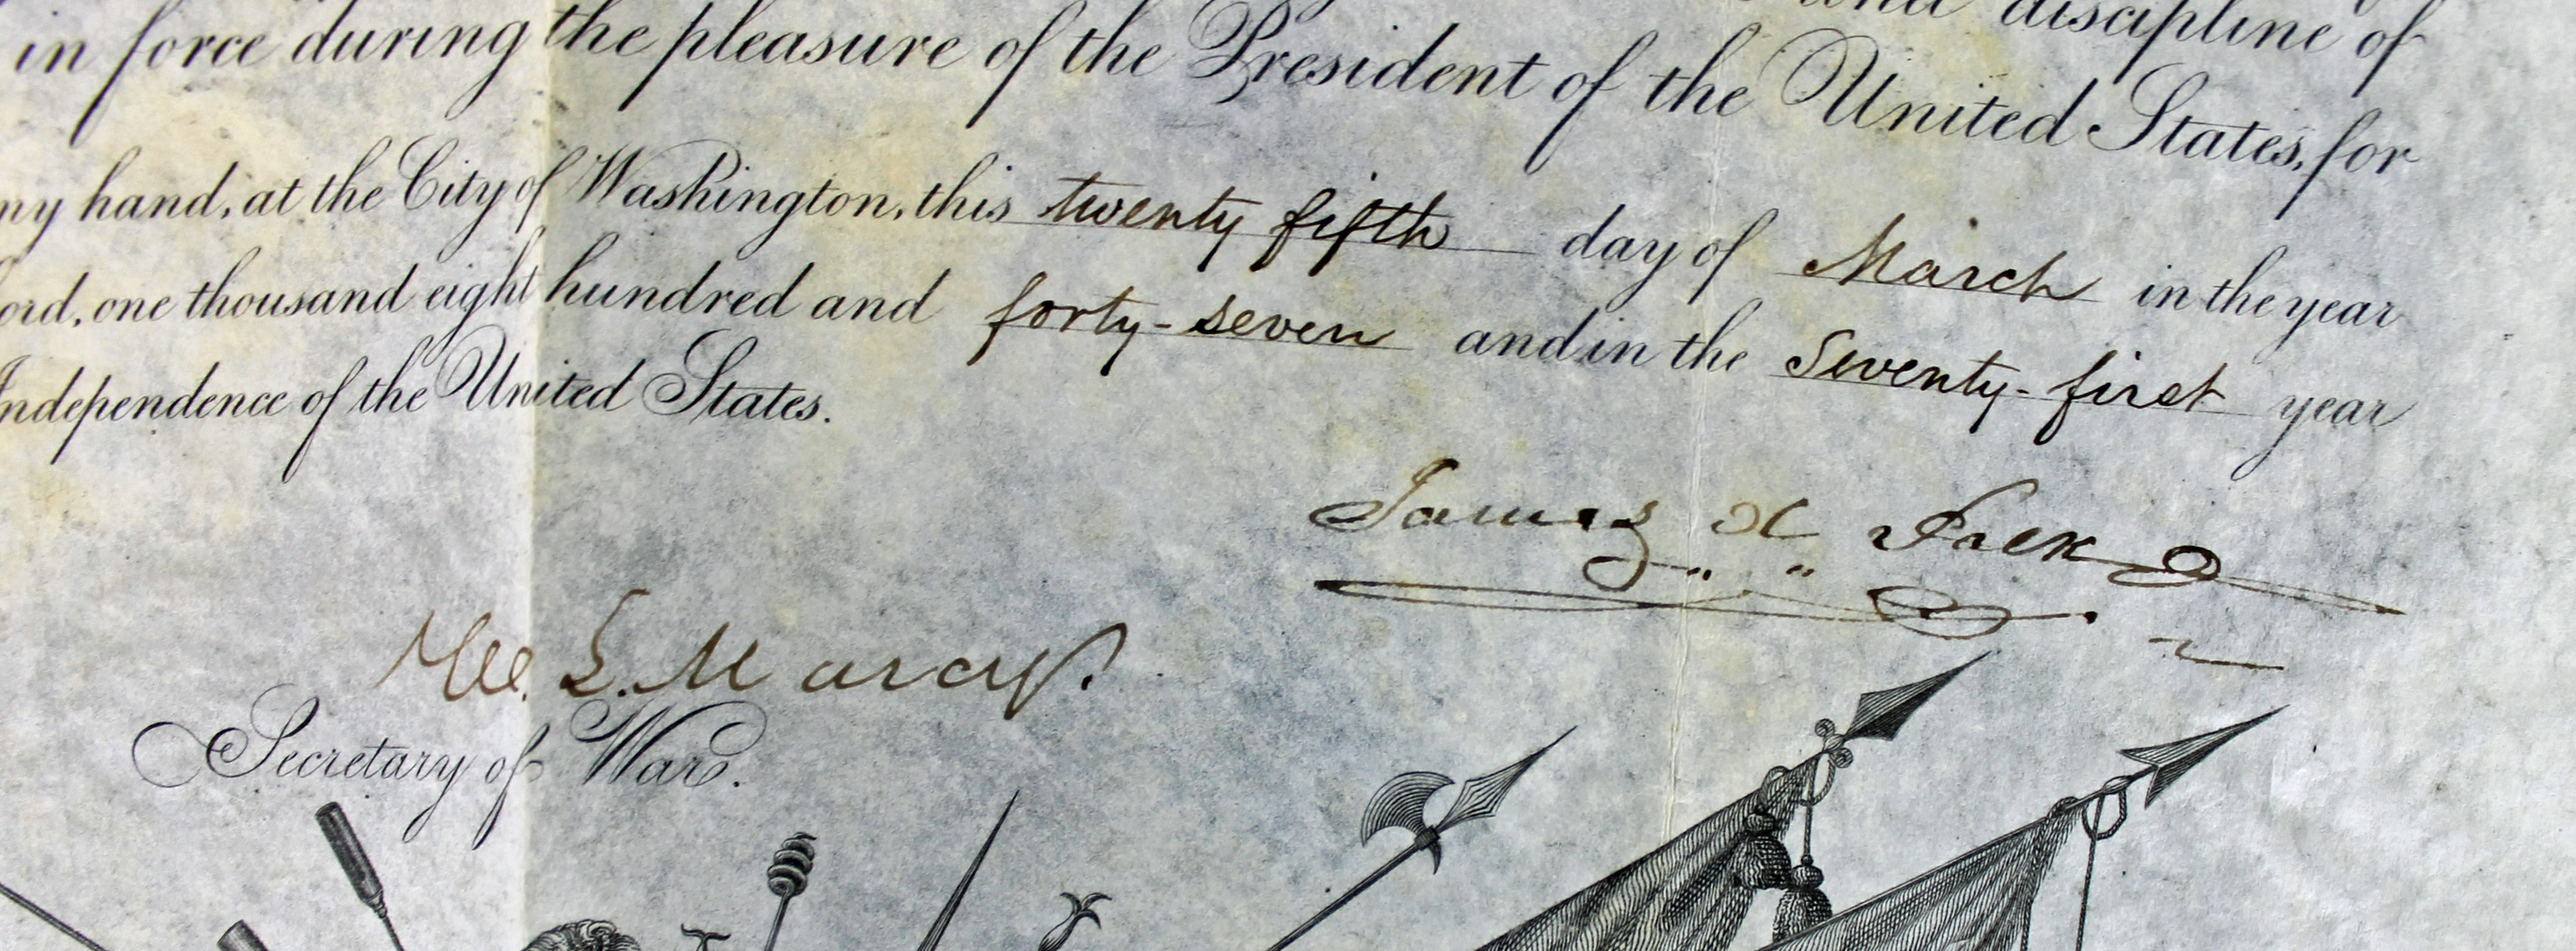 and discipline of
in force during the pleasure of the President of the United States, for
my hand, at the City of Washington, this twenty fifth day of March in the year
ord, one thousand eight hundred and forty-seven and in the Seventy-first year
Independence of the United States.
James K Polk
W. L. Marcy.
Secretary of War.